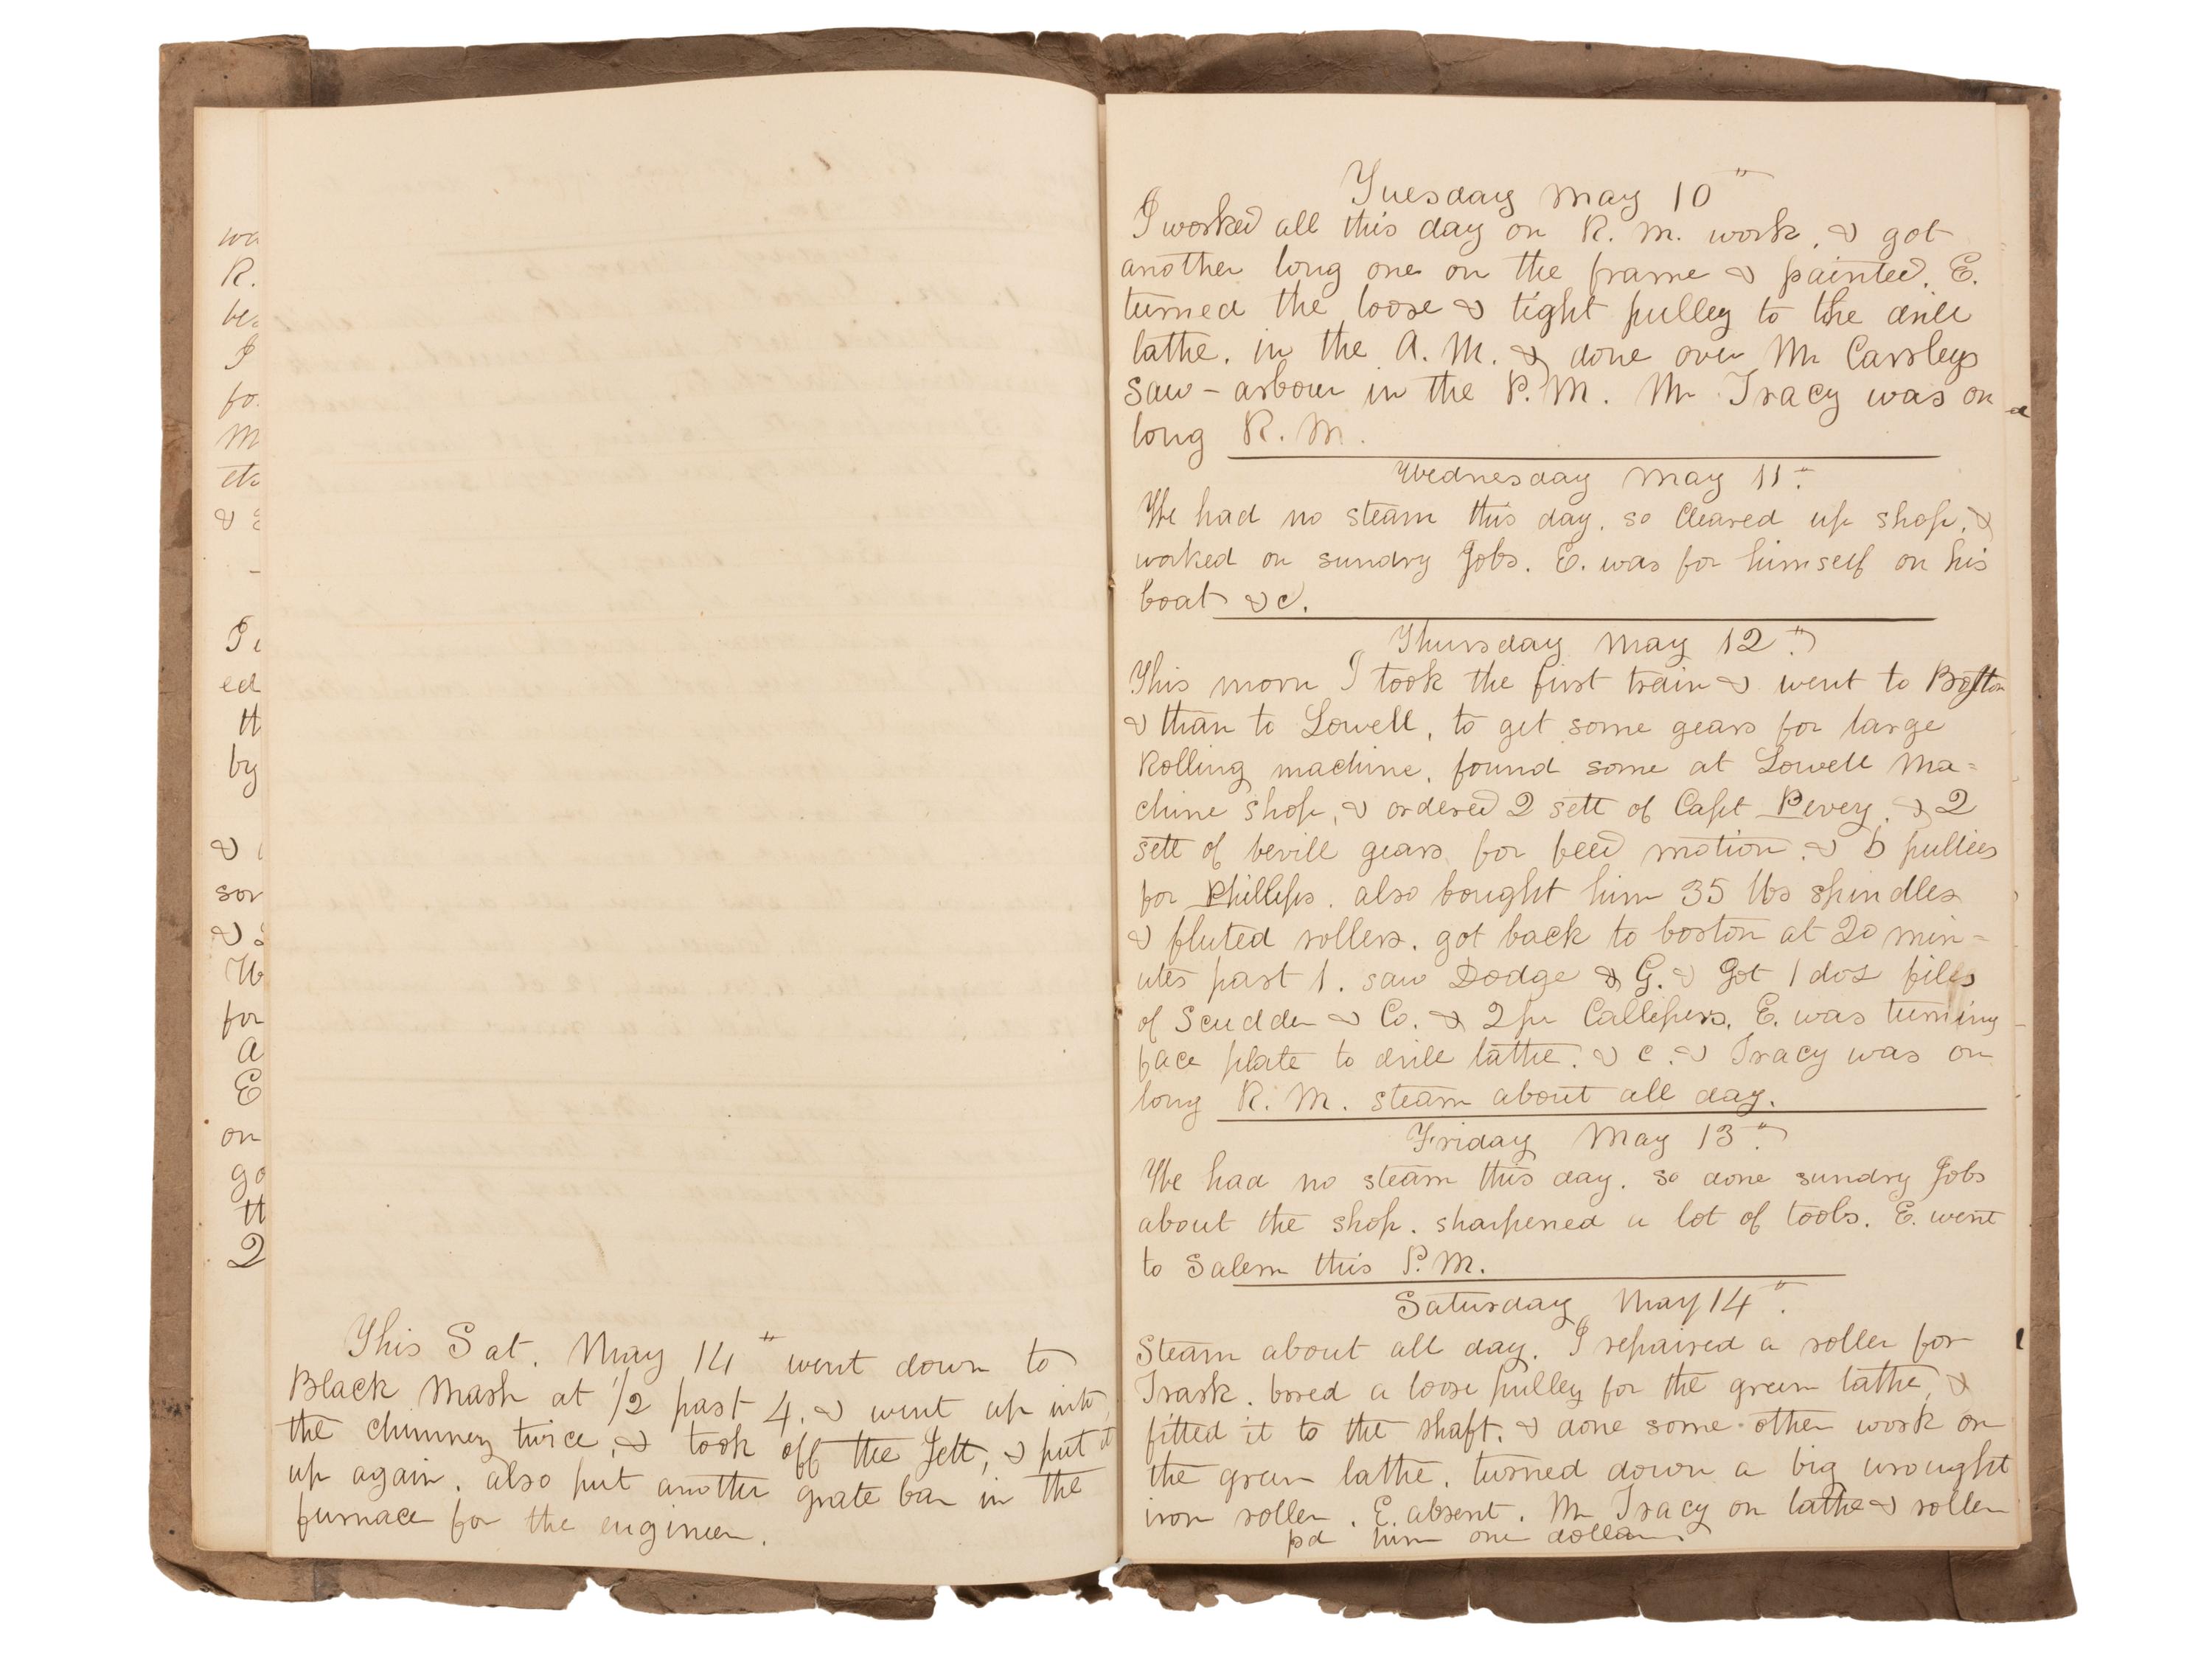 wa
R.
be
I
fo.
M
etc
&
I
ed
th
by
&
sor
&
W
for
a
E
on
go
tt
2
This Sat. May 14" went down to
Black Mash at 1/2 past 4. & went up into
the chimney twice, & took off the Jett, & put it
up again. also put another grate bar in the
furnace for the engineer.
Tuesday May 10"
I worked all this day on R. M. work, & got
another long one on the frame & painted. E.
turned the loose & tight pulley to the drill
lathe. in the A. M. & done over Mr Carsleys
saw - arbour in the P. M. Mr Tracy was on
long R. M.
Wednesday May 11"
We had no steam this day. so cleared up shop, &
worked on sundry Jobs. E. was for himself on his
boat &c.
Thursday May 12"
This morn I took the first train & went to Boston
& than to Lowell, to get some gears for large
Rolling machine, found some at Lowell Ma=
chine shop, & ordered 2 sett of Capt Pevey. & 2
sett of bevill gears for feed motion. & 6 pullies
for Phillips. also bought him 35 lbs spindles
& fluted rollers. got back to boston at 20 min=
utes past 1. saw Dodge & G. & Got 1 doz files
of Scudder & Co. & 2 pr Callipers. E. was turning
face plate to drill lathe. & c. & Tracy was on
long R. M. steam about all day.
Friday May 13"
We had no steam this day. so done sundry Jobs
about the shop. sharpened a lot of tools. E. went
to Salem this P. M.
Saturday May 14"
Steam about all day. I repaired a roller for
Trask. bored a loose pulley for the green lathe, &
fitted it to the shaft. & done some other work on
the green lathe. turned down a big wrought
iron roller. E. absent. Mr Tracy on lathe & roller
pd him one dollar.